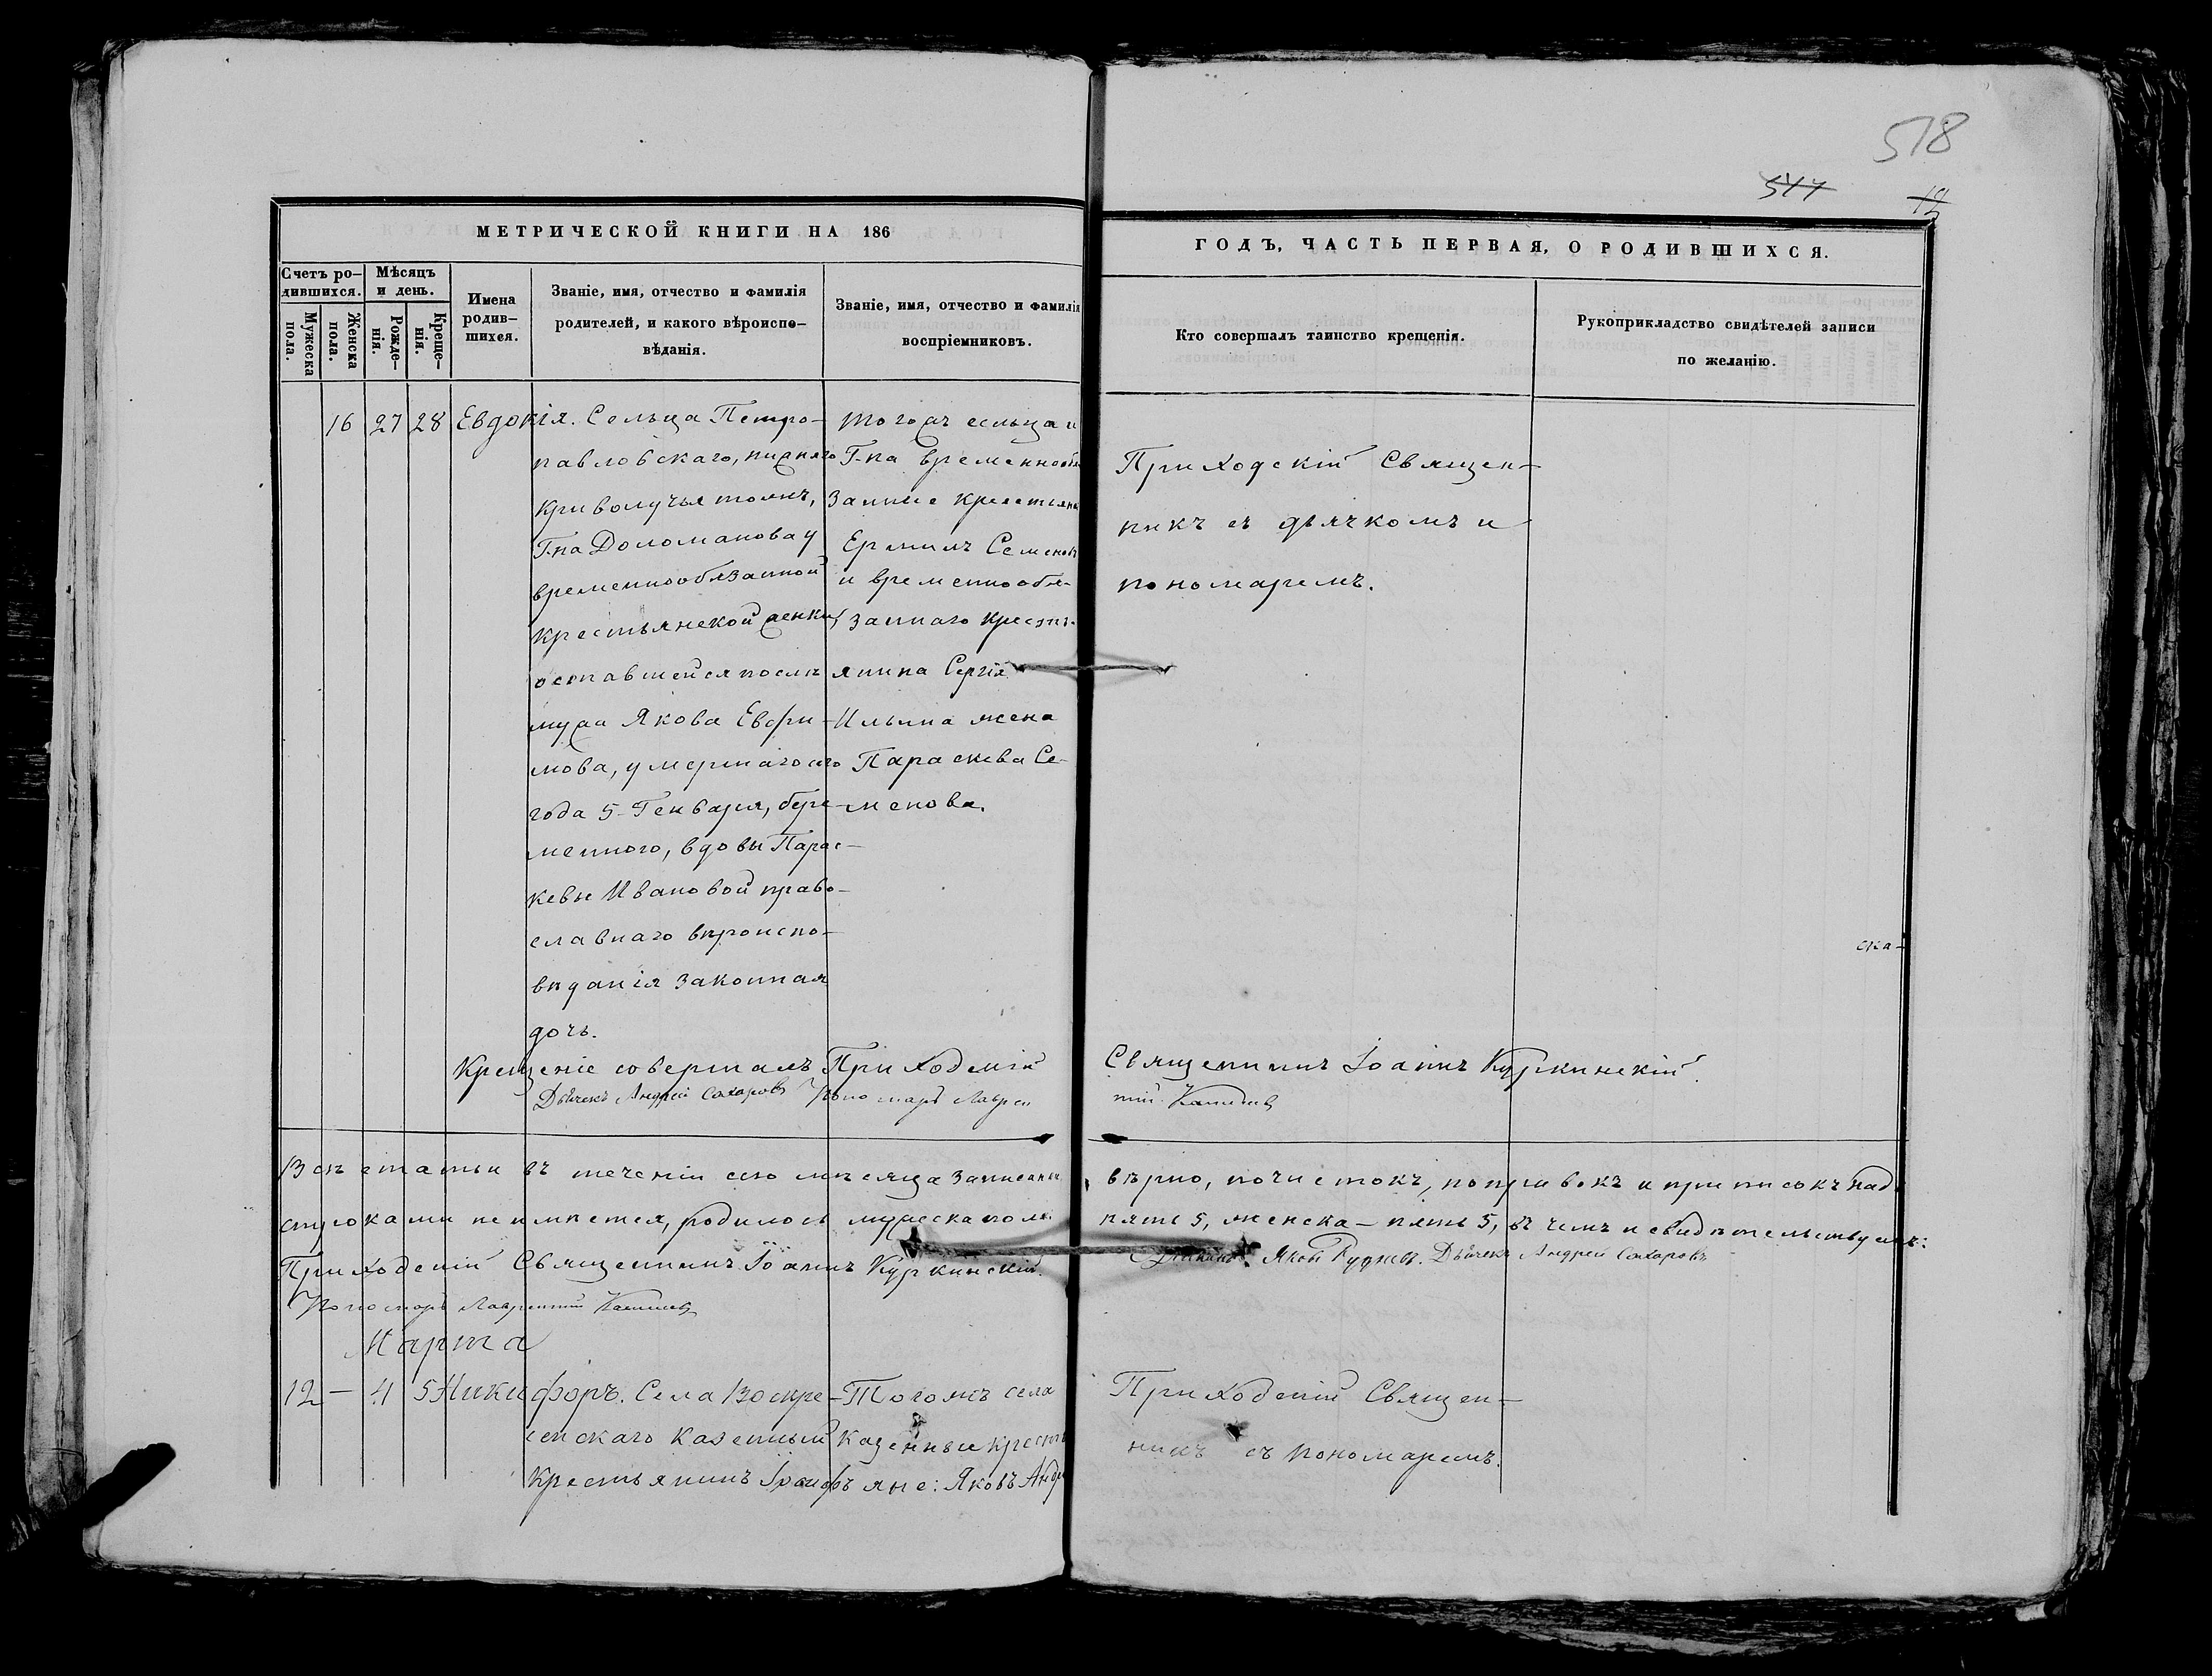 518
577
МЕТРИЧЕСКОЙ КНИГИ НА 186
ГОДЪ, ЧАСТЬ ПЕРВАЯ, О РОДИВШИХСЯ.
Счетъ ро-
дившихся.
Мужеска
пола.
Женска
пола.
Мѣсяцъ
и день.
Рожде-
нія.
Креще-
нія.
Имена
родив-
шихся.
Званіе, имя, отчество и фамилія
родителей, и какого вѣроиспо-
вѣданія.
Званіе, имя, отчество и фамилія
воспріемниковъ.
Кто совершалъ таинство крещенія.
Рукоприкладство свидѣтелей записи
по желанію.
16 27 28 Евдокія. Сельца Петро-
павловскаго, нижняго
Криволучья тожъ,
Г-на Доломанова у
временнообязанной
крестьянской женки,
оставшейся послѣ
мужа Якова Евфи-
мова, умершаго сего
года 5 Генваря, бере-
менного, вдовы Парас-
кевы Ивановой право-
славнаго вѣроиспо-
вѣданія законная
дочь.
Тогожъ сельца и
Г-на временнообя
занные крестьяне
Ермилъ Семеновъ
и временнообя-
заннаго кресть-
янина Сергія
Ильина жена
Параскева Се-
менова.
Приходскій Священ-
никъ съ дьячкомъ и
пономаремъ.
Крещеніе совершалъ Приходскій Священникъ Іоаннъ Куркинскій.
Дьячекъ Андрей Сахаровъ Пономарь Лаврентій
Всѣ статьи въ теченіи сего мѣсяца записаны вѣрно, почистокъ, поправокъ и приписокъ над
строками неимѣется, родилось мужеска пола пять 5, женска - пять 5, въ чемъ и свидѣтельствуемъ:
Приходскій Священникъ Іоаннъ Куркинскій. Яковъ Рудневъ. Дьячекъ Андрей Сахаровъ
Пономарь Лаврентій
Марта
12 - 4 5 Никифоръ. Села Воскре-
сенскаго казенный
крестьянинъ Іосифъ
Тогожъ села
казенные кресть
яне: Яковъ Андре
Приходскій Священ-
никъ съ пономаремъ.